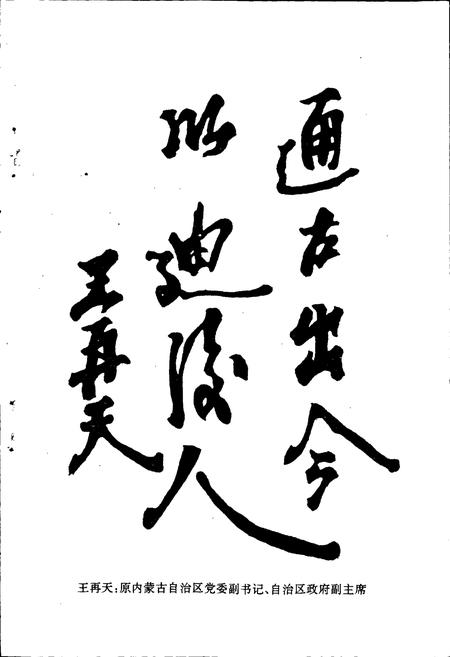 通古出今
以迪後人
王再天
王再天：原内蒙古自治区党委副书记、自治区政府副主席